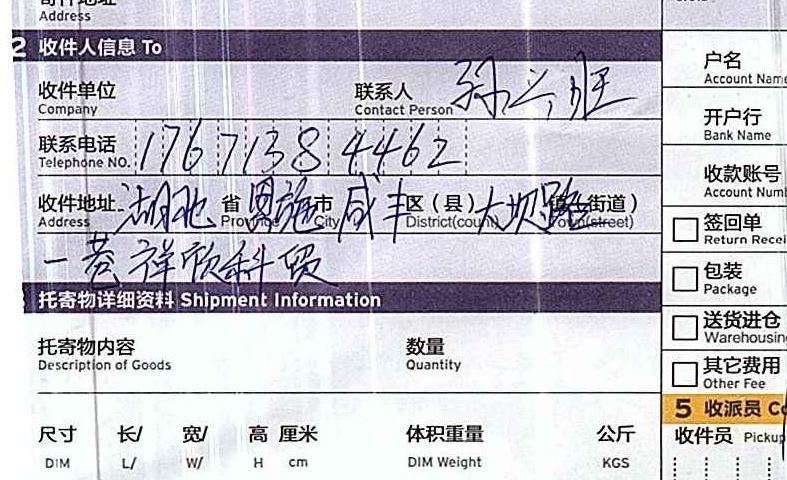 寄件地址
Address
2 收件人信息 To
收件单位
Company
联系人
Contact Person 孙兴旺
联系电话
Telephone NO. 17671384462
收件地址 湖北 省 恩施 市 咸丰 区（县）大坝路 镇（街道）
Address Province City District(county) Town(street)
一巷祥欣科贸
托寄物详细资料 Shipment Information
托寄物内容
Description of Goods
数量
Quantity
尺寸 长/ 宽/ 高 厘米
DIM L/ W/ H cm
体积重量
DIM Weight
公斤
KGS
户名
Account Name
开户行
Bank Name
收款账号
Account Num
签回单
Return Recei
包装
Package
送货进仓
Warehousing
其它费用
Other Fee
5 收派员 Co
收件员 Pickup